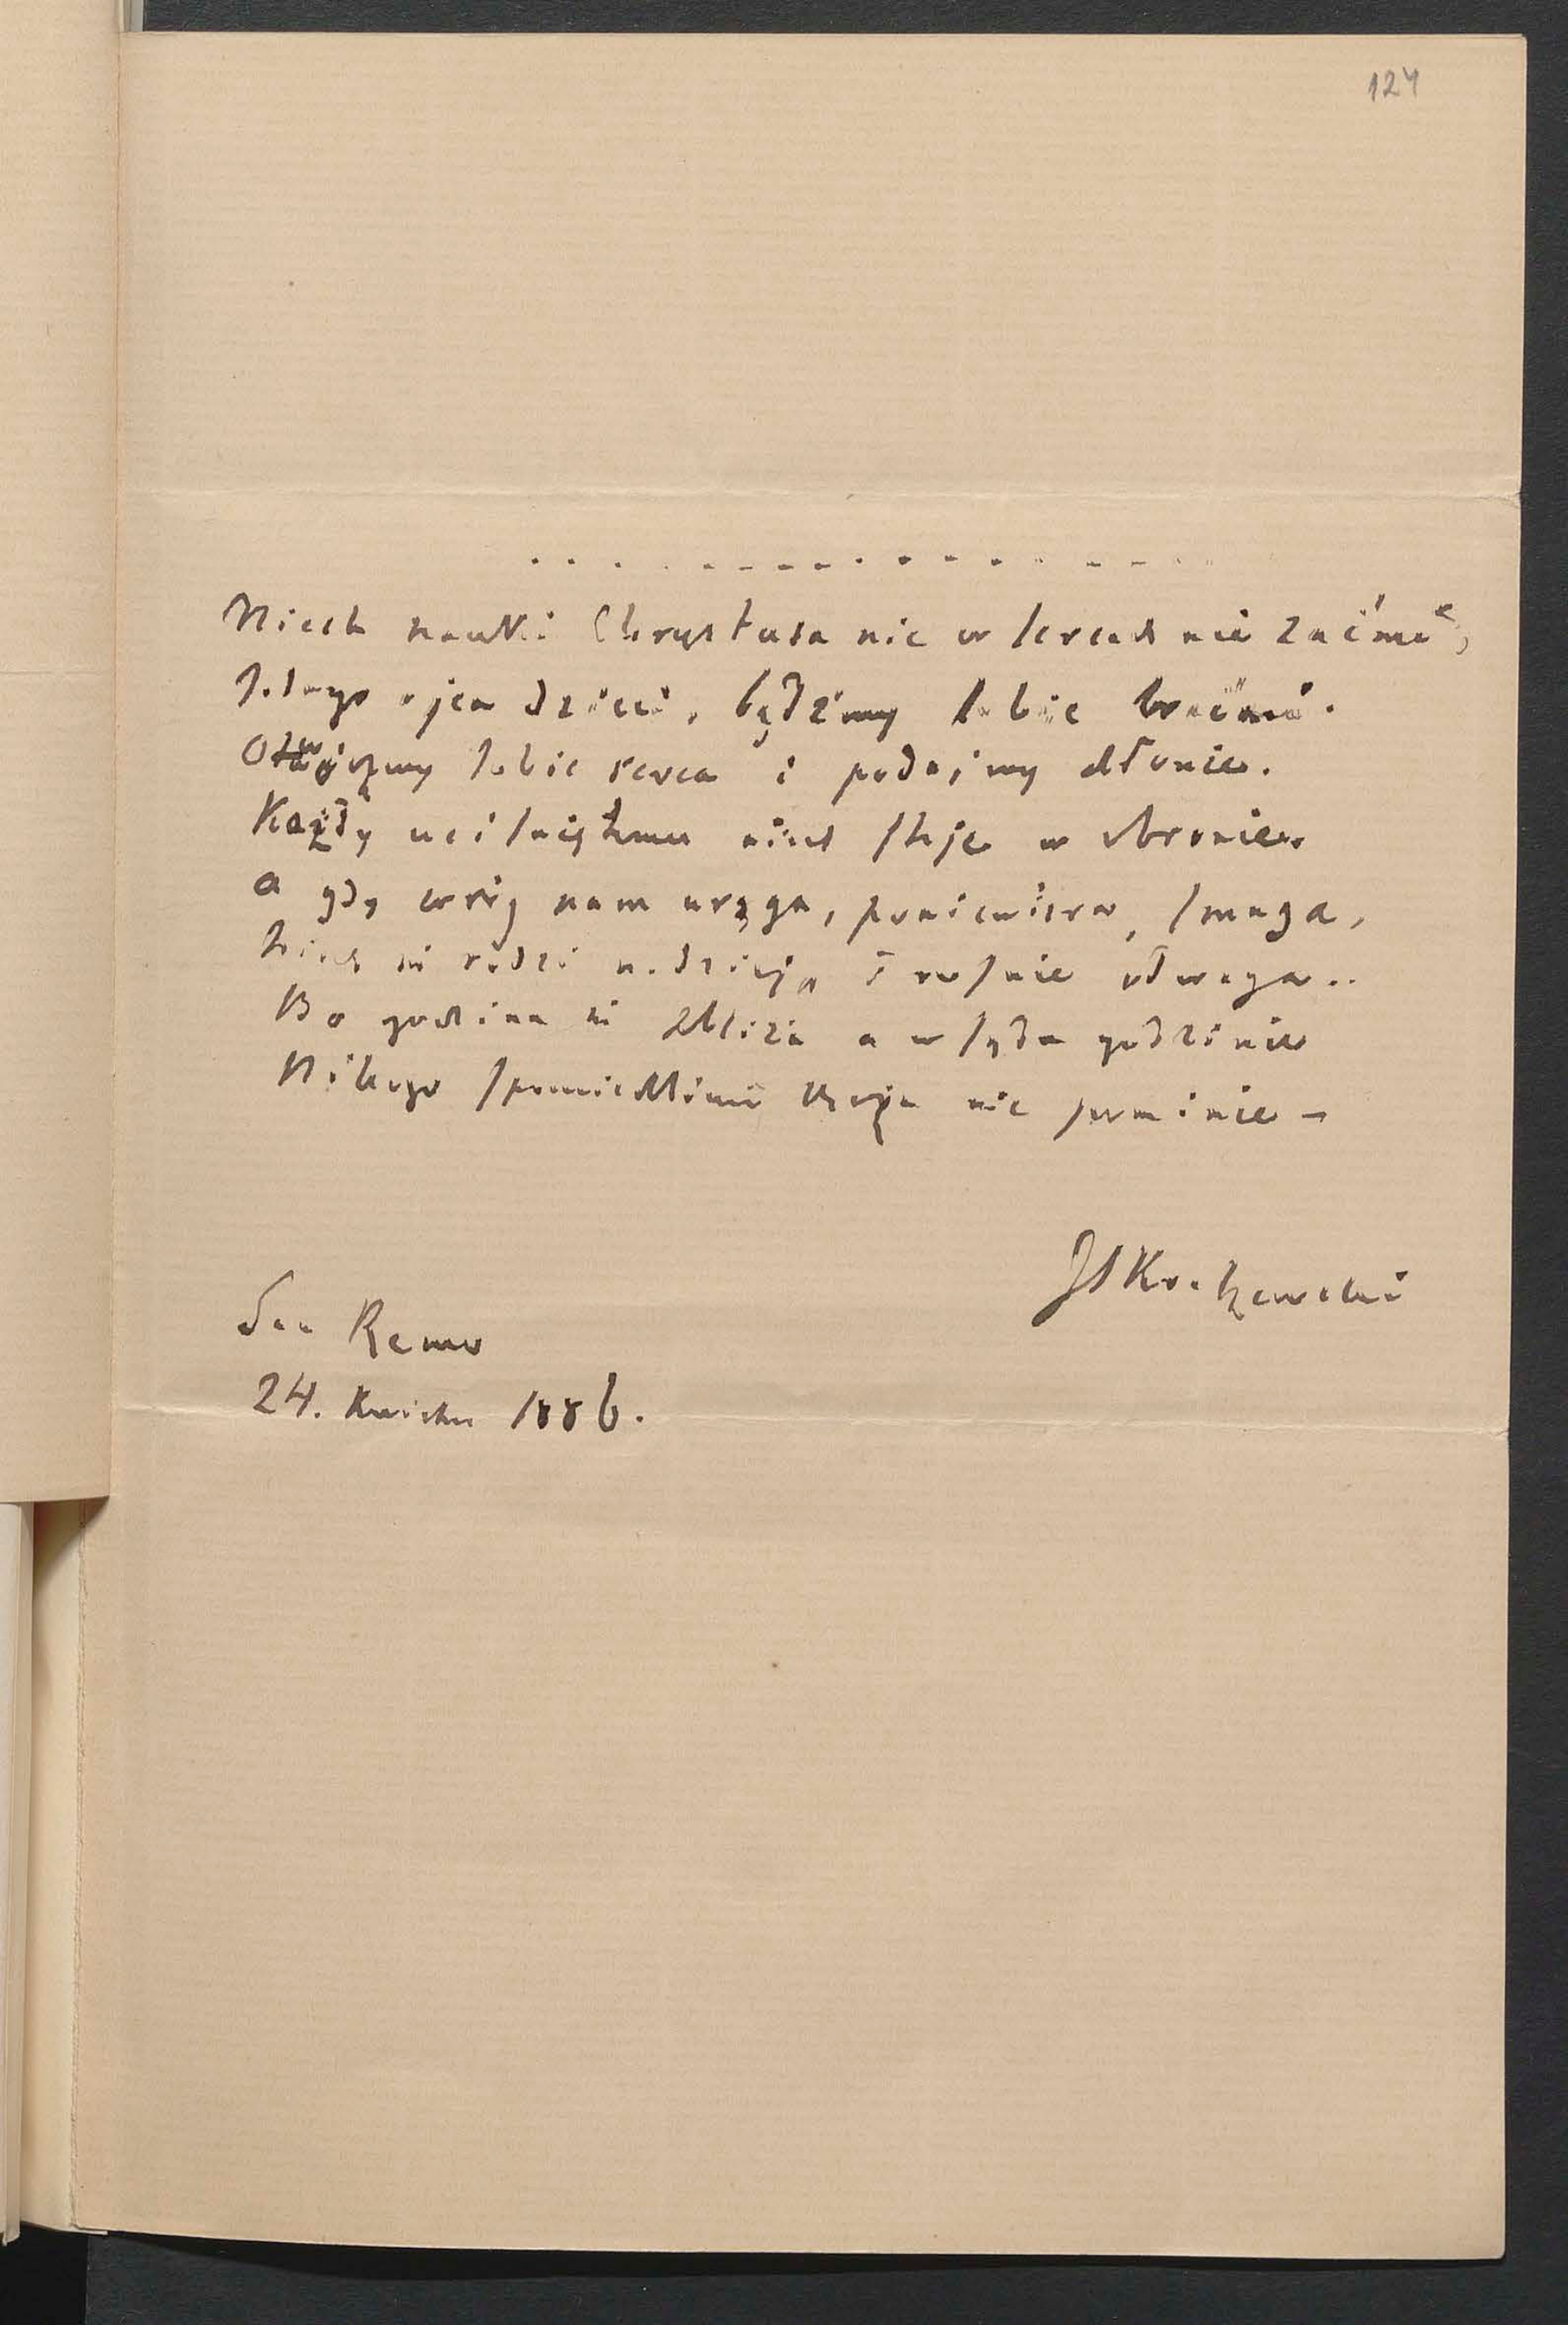 124
. . . . . . . . . . . . . . . . . .
Niech nauki Chrystusa nic w sercach nie zaćmi,
Jednego ojca dzieci, bądźmy sobie braćmi.
Otwórzmy sobie serca i podajmy dłonie.
Każdy uciśniętemu niech staje w obronie
a gdy wróg nam urąga, poniewiera, smaga,
Niech się rodzi nadzieja i rośnie odwaga..
Bo godzina się zbliża a w sądu godzinie
Nikogo sprawiedliwość Boża nie pominie –
JIKraszewski
San Remo
24. Kwietn 1886.